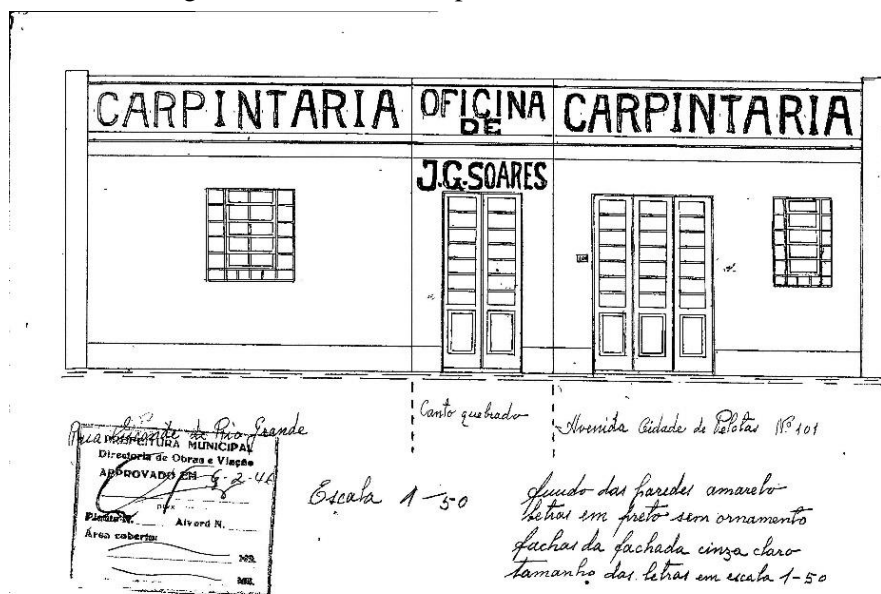 CARPINTARIA
OFICINA
DE
CARPINTARIA
J.G.SOARES
Canto quebrado
Avenida Cidade de Pelotas Nº 101
Rua Visconde do Rio Grande
PREFEITURA MUNICIPAL
Directoria de Obras e Viação
APPROVADO EM 6-2-4
Planta N. Alvará N.
Área coberta:
M2.
M2.
Escala 1-50
fundo das paredes amarelo
Letras em preto sem ornamento
fachas da fachada cinza claro
tamanho das letras em escala 1-50